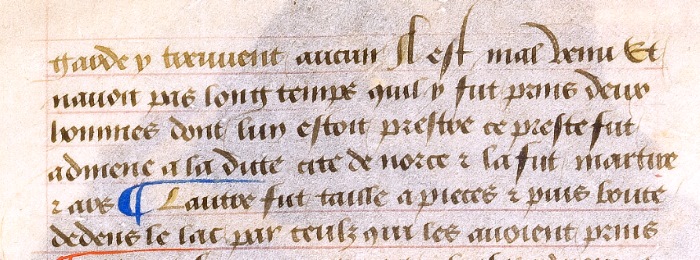 garde y treuuent aucun Il est mal venu Et
nauoit pas long temps quil y fut prins deux
hommes dont lun estoit prestre ce prestre fut
admene a la ditte cite de norce ⁊ la fut martire
⁊ ars ¶ Lautre fut taille a pieces ⁊ puis boute
dedens le lac par ceulz qui les auoient prins